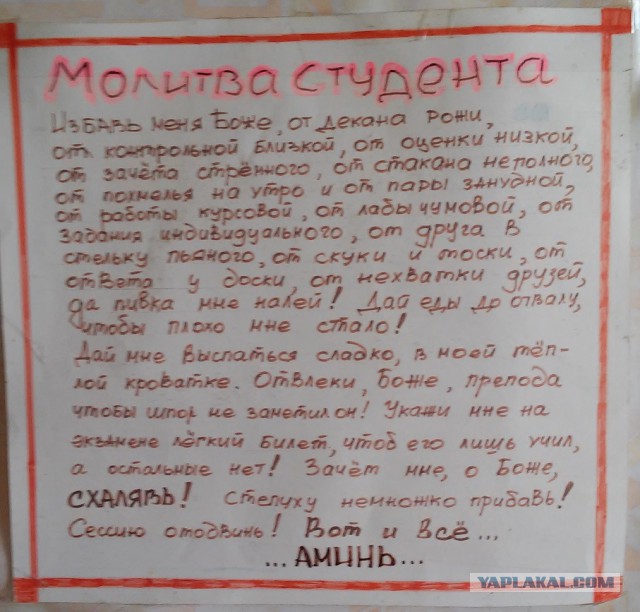 Молитва студента
Избавь меня Боже, от декана рожи,
от контрольной близкой, от оценки низкой,
от зачёта стрёмного, от стакана неполного,
от похмелья на утро и от пары занудной,
от работы курсовой, от лабы чумовой, от
задания индивидуального, от друга в
стельку пьяного, от скуки и тоски, от
ответа у доски, от нехватки друзей,
да пивка мне налей! Дай еды до отвалу,
чтобы плохо мне стало!
Дай мне выспаться сладко, в моей тёп-
лой кроватке. Отвлеки, Боже, препода
чтобы шпор не заметил он! Укажи мне на
экзамене лёгкий билет, чтоб его лишь учил,
а остальные нет! Зачёт мне, о Боже,
СХАЛЯВЬ! Степуху немножко прибавь!
Сессию отодвинь! Вот и всё...
...АМИНЬ...
YAPLAKAL.COM